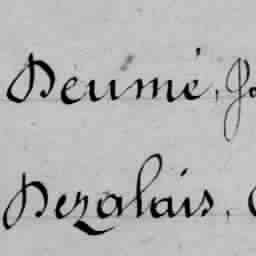 Deumé, J
Dezalais,